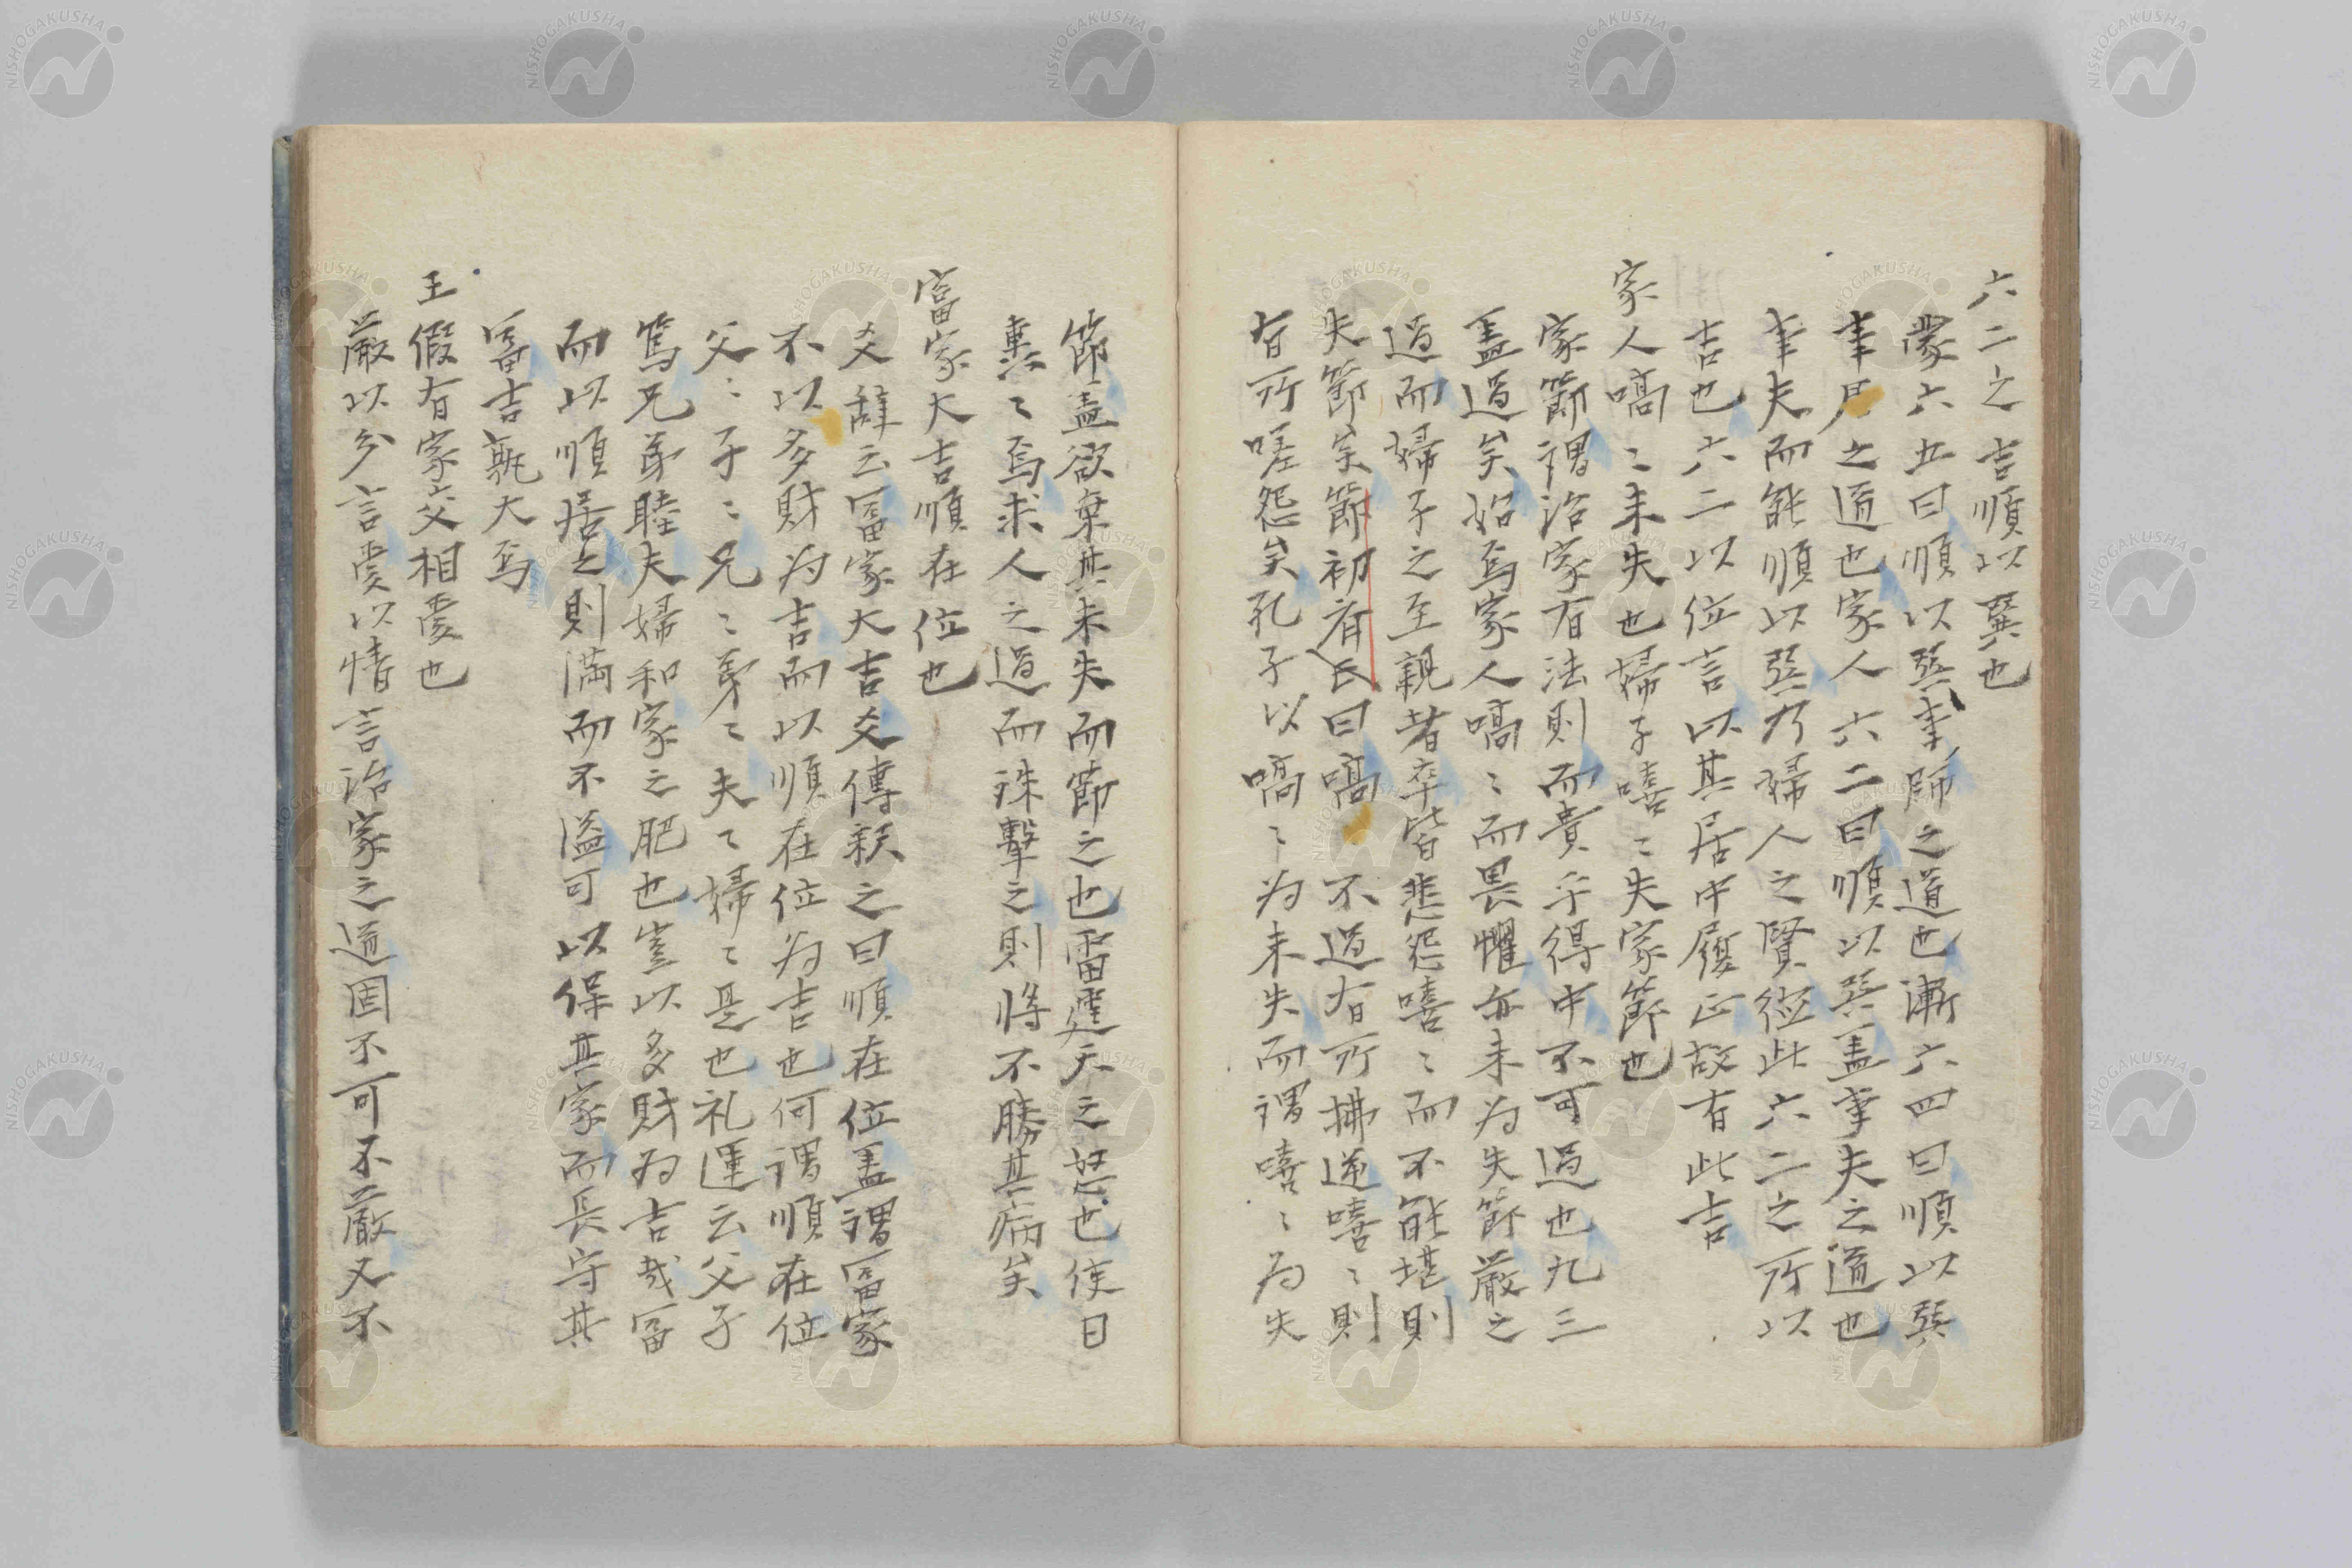 六二之吉順以巽也
蒙六五曰順以巽事師之道也漸六四曰順以巽
事君之道也家人六二曰順以巽盖事夫之道也
事夫而能順以巽乃婦人之賢德此六二之所以
吉也六二以位言以其居中履正故有此吉
家人嗃〻未失也婦子嘻〻失家節也
家節謂治家有法則而貴乎得中不可過也九三
盖過矣始焉家人嗃〻而畏懼亦未為失節嚴之
過而婦子之至親者卒皆悲怨嘻〻而不能堪則
失節矣節初齊氏曰嗃不過有所拂逆嘻〻則
有所嗟怨矣孔子以嗃〻為未失而謂嘻〻為失
節盖欲棄其未失而節之也雷霆天之怒也使日
轟〻焉求人之過而誅擊之則將不勝其病矣
富家大吉順在位也
爻辭云冨家大吉爻傳釈之曰順在位盖謂冨家
不以多財為吉而以順在位為吉也何謂順在位
父〻子〻兄〻弟〻夫〻婦〻是也礼運云父子
篤兄弟睦夫婦和家之肥也豈以多財為吉哉冨
而以順居之則満而不溢可以保其家而長守其
富吉孰大焉
王假有家交相愛也
嚴以分言愛以情言治家之道固不可不嚴又不
NISHOGAKUSHA